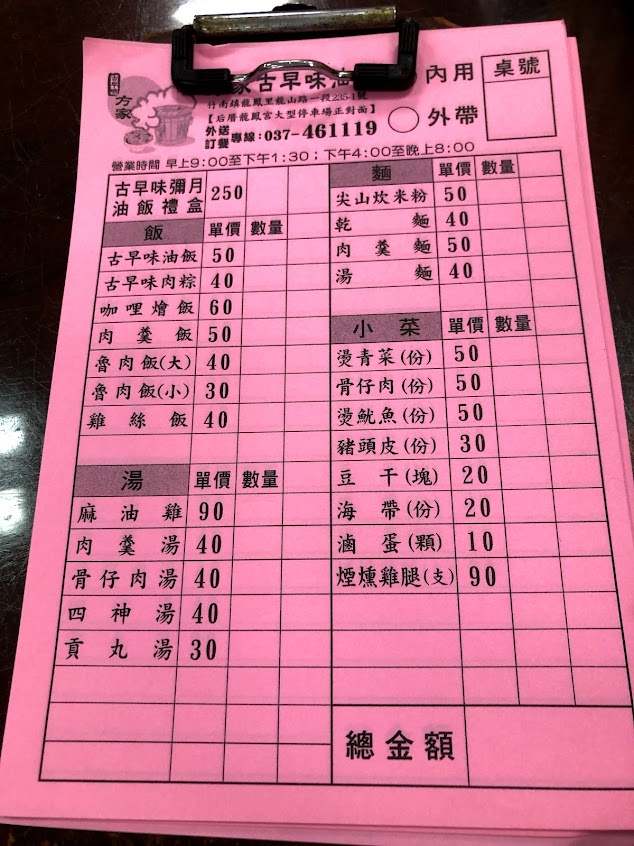 方家
家古早味油
竹南鎮龍鳳里龍山路一段235-1號
【后厝龍鳳宮大型停車場正對面】
外送訂餐專線:037-461119
內用
外帶
桌號
營業時間 早上9:00至下午1:30;下午4:00至晚上8:00
古早味彌月油飯禮盒 250
飯 單價 數量
古早味油飯 50
古早味肉粽 40
咖哩燴飯 60
肉羹飯 50
魯肉飯(大) 40
魯肉飯(小) 30
雞絲飯 40
湯 單價 數量
麻油雞 90
肉羹湯 40
骨仔肉湯 40
四神湯 40
貢丸湯 30
麵 單價 數量
尖山炊米粉 50
乾麵 40
肉羹麵 50
湯麵 40
小菜 單價 數量
燙青菜(份) 50
骨仔肉(份) 50
燙魷魚(份) 50
豬頭皮(份) 30
豆干(塊) 20
海帶(份) 20
滷蛋(顆) 10
煙燻雞腿(支) 90
總金額